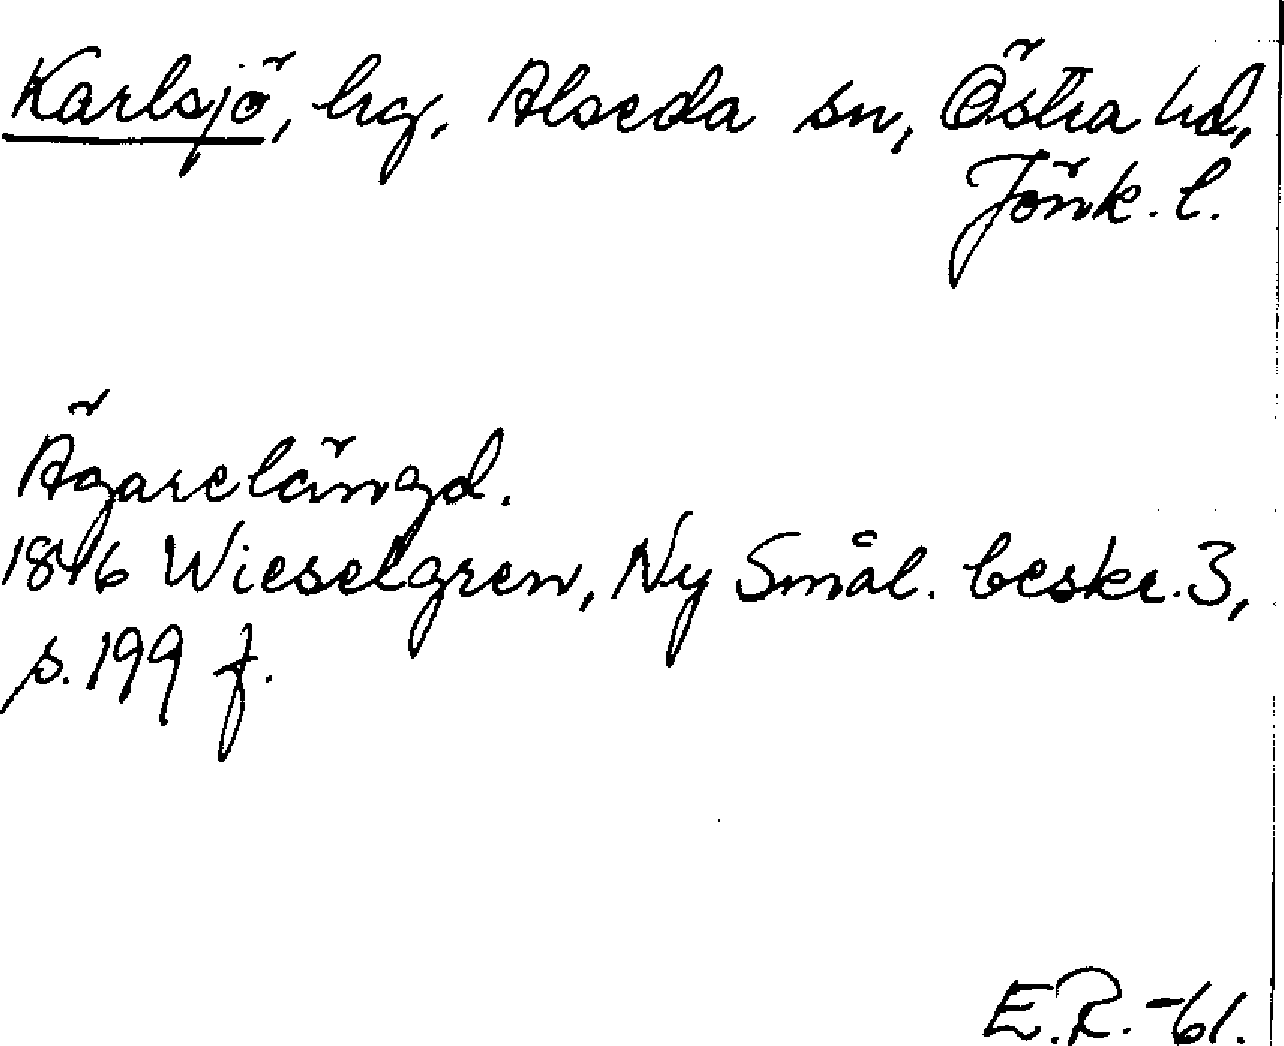 Karlsjö, hg, Alseda sn, Östra hd,
Jönk. l.
Ägarelängd.
1846 Wieselgren, Ny Smål. beskr. 3,
s. 199 f.
E.R. -61.